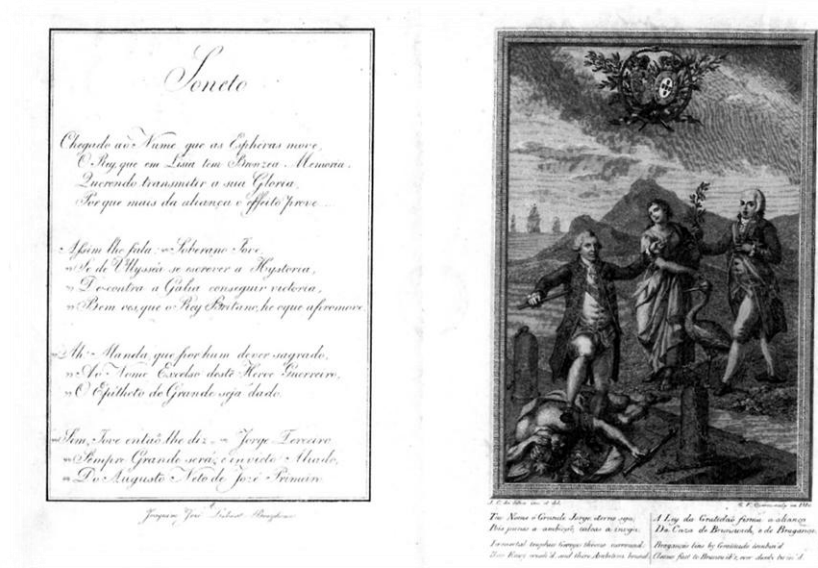 Soneto
Chegado ao Nume que as Espheras move,
O Rey, que em Lisia tem Bronzea Memoria,
Querendo transmitir a sua Gloria,
Porque mais da aliança o effeito prove
Assim lhe fala: Soberano Jove,
Se de Ullysséa se escrever a Hystoria,
De contra a Galia conseguir victoria,
Bem ves, que o Rey Britano, he o que a promove
Ah Manda, que por hum dever sagrado,
Ao Nome Excelso deste Heroe Guerreiro,
O Epitheto de Grande seja dado.
Sim, Jove então lhe diz, Jorge Terceiro
Sempre Grande será, e invicto Aliado,
Do Augusto Neto de Jozé Primeiro
Joaquim José
Teu Nome ó Grande Jorge eterno seja,
Pois pizas a ambição, calcas a inveja.
Immortal George thrones surround,
A Ley da Gratidão firma a aliança
Da Caza de Brunswick, e de Bragança.
by Gratitude
fast to Brunswick's, ever